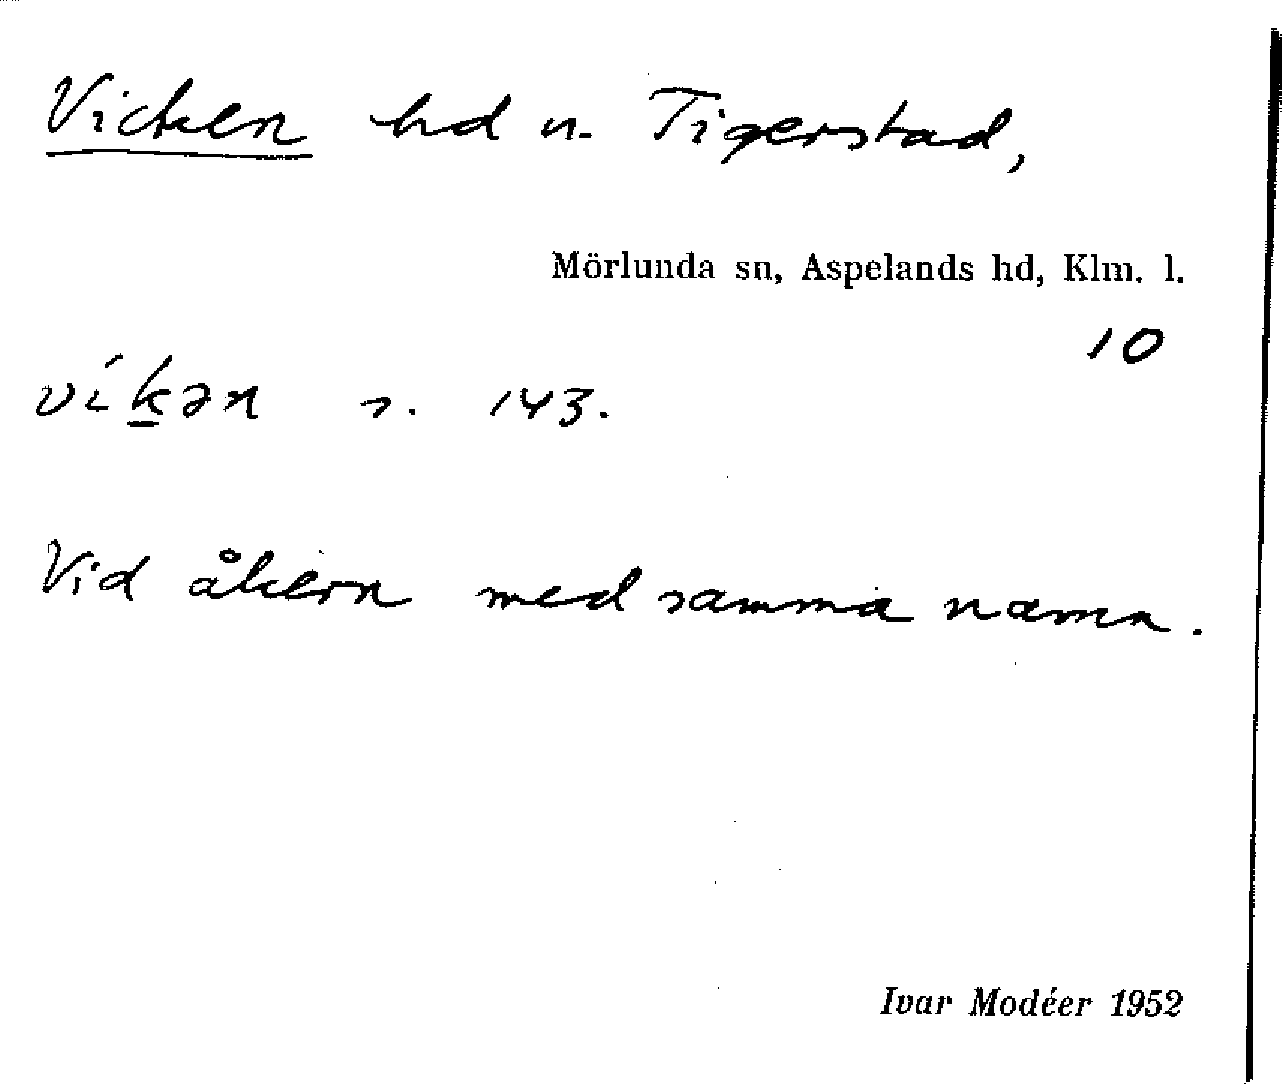 Vicken hd u. Tigerstad,
Mörlunda sn, Aspelands hd, Klm. l.
10
vík̲ən s. 143.
Vid åkern med samma namn.
Ivar Modéer 1952